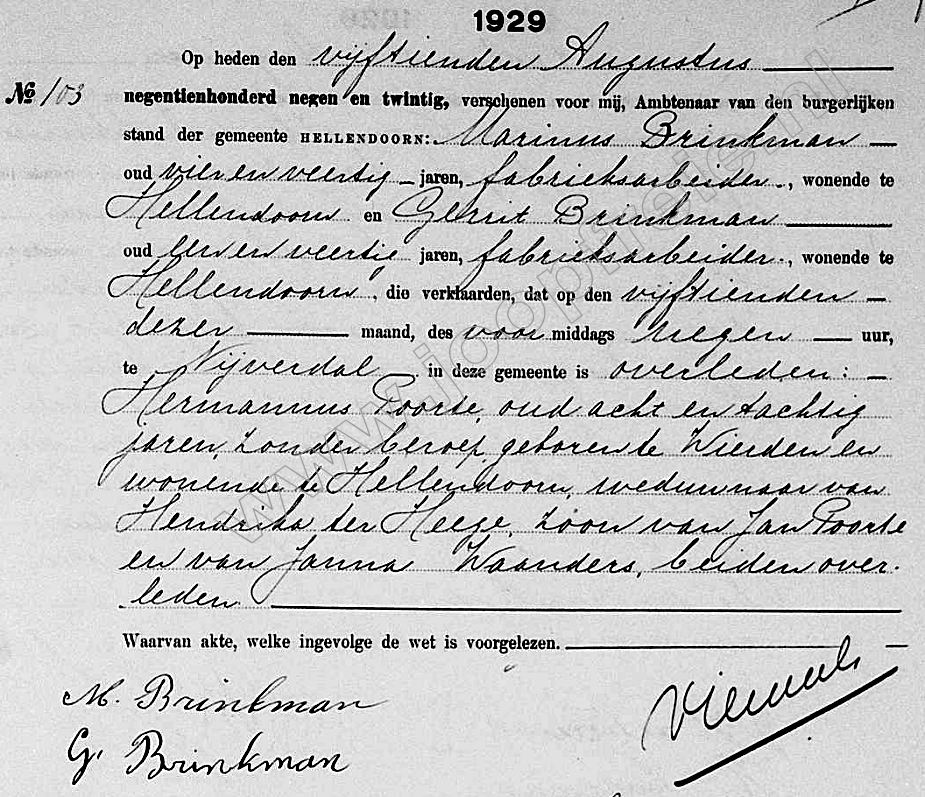 1929
Op heden den vijftienden Augustus
№ 103 negentienhonderd negen en twintig, verschenen voor mij, Ambtenaar van den burgerlijken
stand der gemeente HELLENDOORN: Marinus Brinkman
oud vier en veertig jaren, fabrieksarbeider, wonende te
Hellendoorn en Gerrit Brinkman
oud een en veertig jaren, fabrieksarbeider, wonende te
Hellendoorn, die verklaarden, dat op den vijftienden
dezer maand, des voor middags negen uur,
te Nijverdal in deze gemeente is overleden:
Hermannus Poorte, oud acht en tachtig
jaren, zonder beroep, geboren te Wierden en
wonende te Hellendoorn, weduwnaar van
Hendrika ter Heege, zoon van Jan Poorte
en van Janna Waanders, beiden over-
leden
Waarvan akte, welke ingevolge de wet is voorgelezen.
M. Brinkman
G. Brinkman